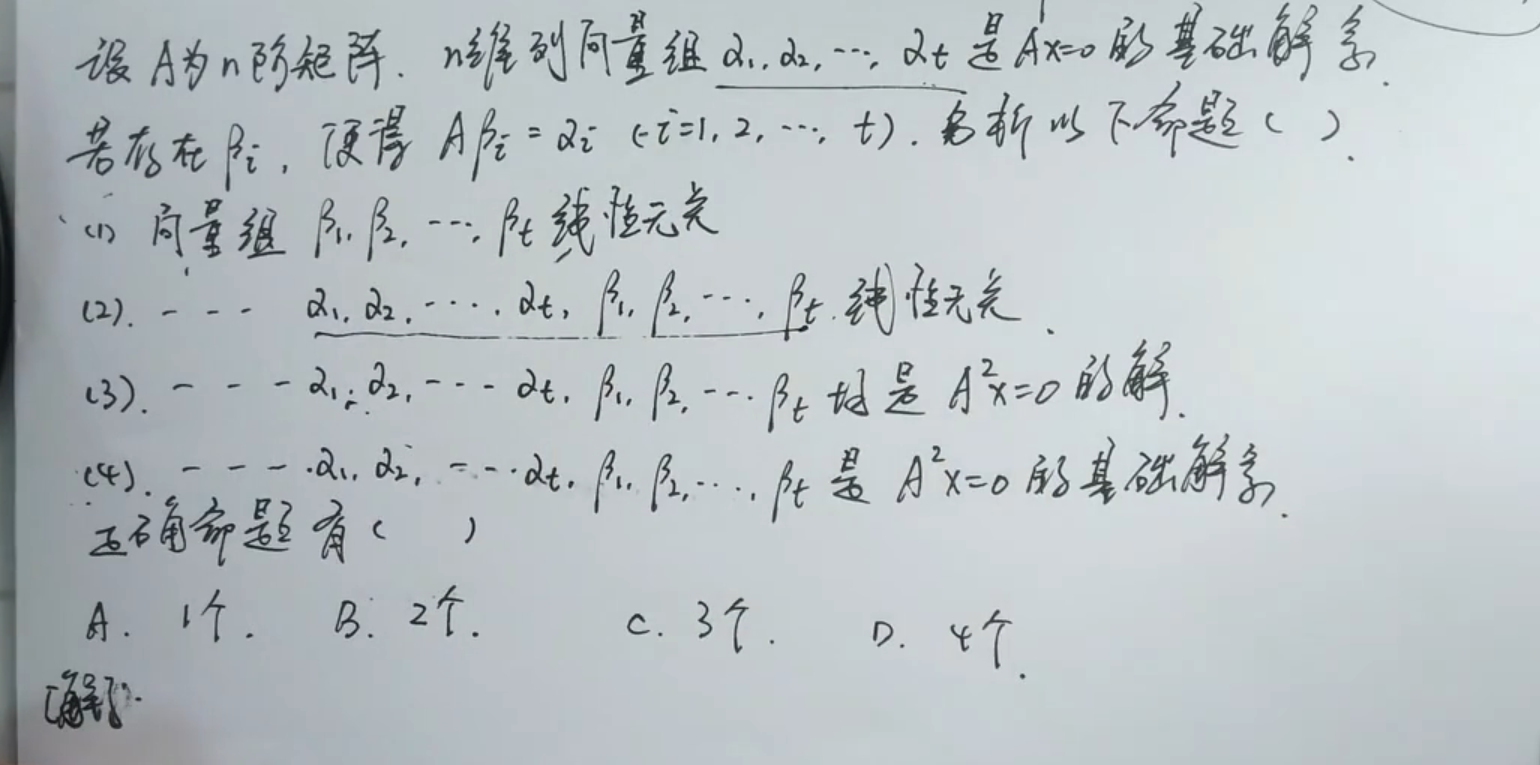 设A为n阶矩阵. n维列向量组 α₁, α₂, …, αt 是Ax=0的基础解系.
若存在βᵢ, 使得 Aβᵢ = αᵢ (i=1, 2, …, t). 分析以下命题( ).
(1) 向量组 β₁, β₂, …, βt 线性无关
(2). - - - α₁, α₂, …, αt, β₁, β₂, …, βt 线性无关.
(3). - - - α₁, α₂, … αt, β₁, β₂, … βt 均是 A²x=0 的解.
(4). - - - α₁, α₂, … αt, β₁, β₂, …, βt 是 A²x=0 的基础解系.
正确命题有( )
A. 1个. B. 2个. C. 3个. D. 4个.
[解].